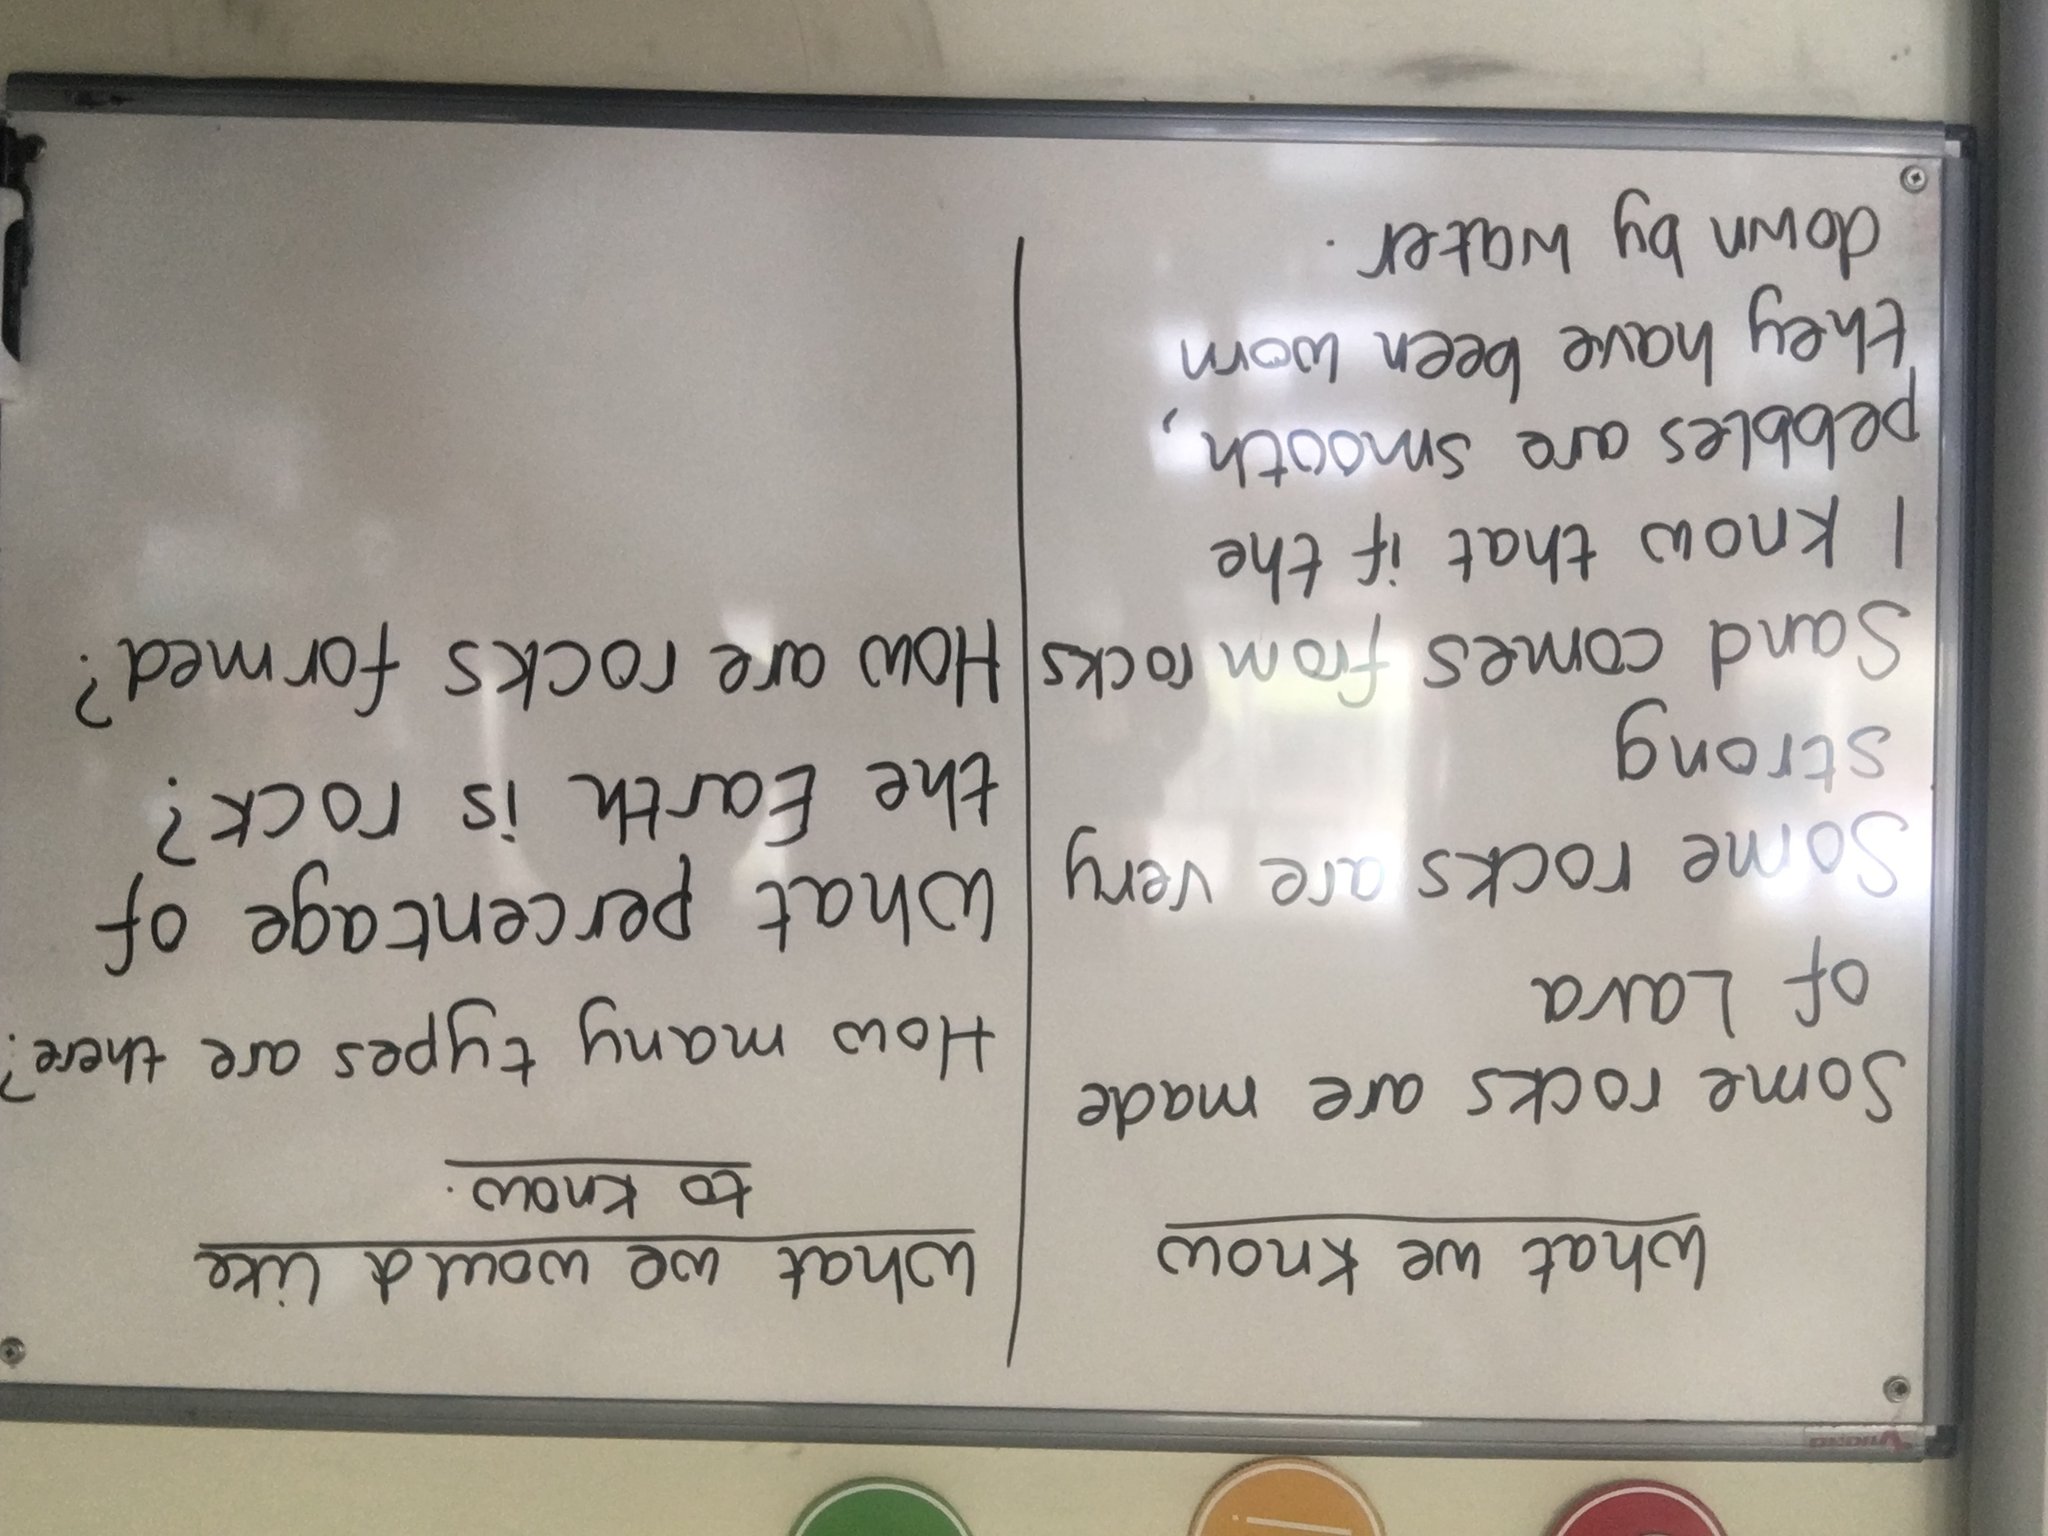 VIKING
What we know
Some rocks are made
of Lava
Some rocks are very
strong
Sand comes from rocks
I know that if the
pebbles are smooth,
they have been worn
down by water.
What we would like
to know.
How many types are there?
What percentage of
the Earth is rock?
How are rocks formed?